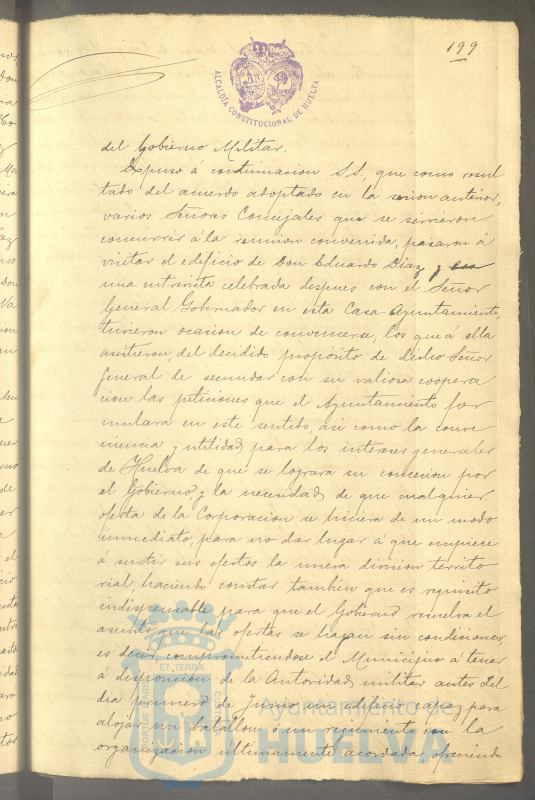 199
ALCALDÍA CONSTITUCIONAL DE HUELVA
del Gobierno Militar.
Expuso á continuacion S.S., que como resul
tado del acuerdo adoptado en la sesion anterior,
varios Señores Concejales que se sirvieron
concurrir á la reunion convenida, pasaron á
visitar el edificio de Don Eduardo Diaz y en
una entrevista celebrada despues con el Señor
General Gobernador en esta Casa Ayuntamiento,
tuvieron ocasion de convencerse, los que á ella
asistieron, del decidido propósito de dicho Señor
General de secundar con su valiosa coopera
cion las peticiones que el Ayuntamiento for
mulara en este sentido, asi como la conve
niencia y utilidad para los intereses generales
de Huelva de que se lograra su concesion por
el Gobierno, y la necesidad de que cualquier
oferta de la Corporacion se hiciera de un modo
inmediato, para no dar lugar á que empiece
á surtir sus efectos la nueva division territo
rial, haciendo constar tambien que es requisito
indispensable para que el Gobierno resuelva el
asunto que las ofertas se hagan sin condiciones,
es decir, comprometiendose el Municipio á tener
á disposicion de la Autoridad militar antes del
dia primero de Junio un edificio capaz para
alojar un batallon ó un regimiento con la
organizacion ultimamente acordada, ofreciendo
PORTUS MARIS ET TERRAE CUSTODIA
Ayuntamiento de
HUELVA